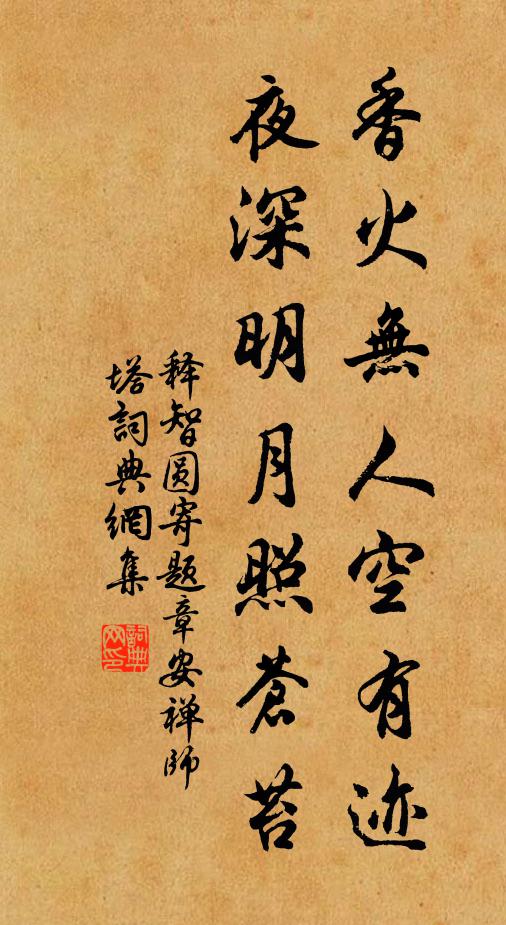 香火無人空有迹
夜深明月照蒼苔
释智圆寄题章安禅師
塔詞典網集
詞典
网印